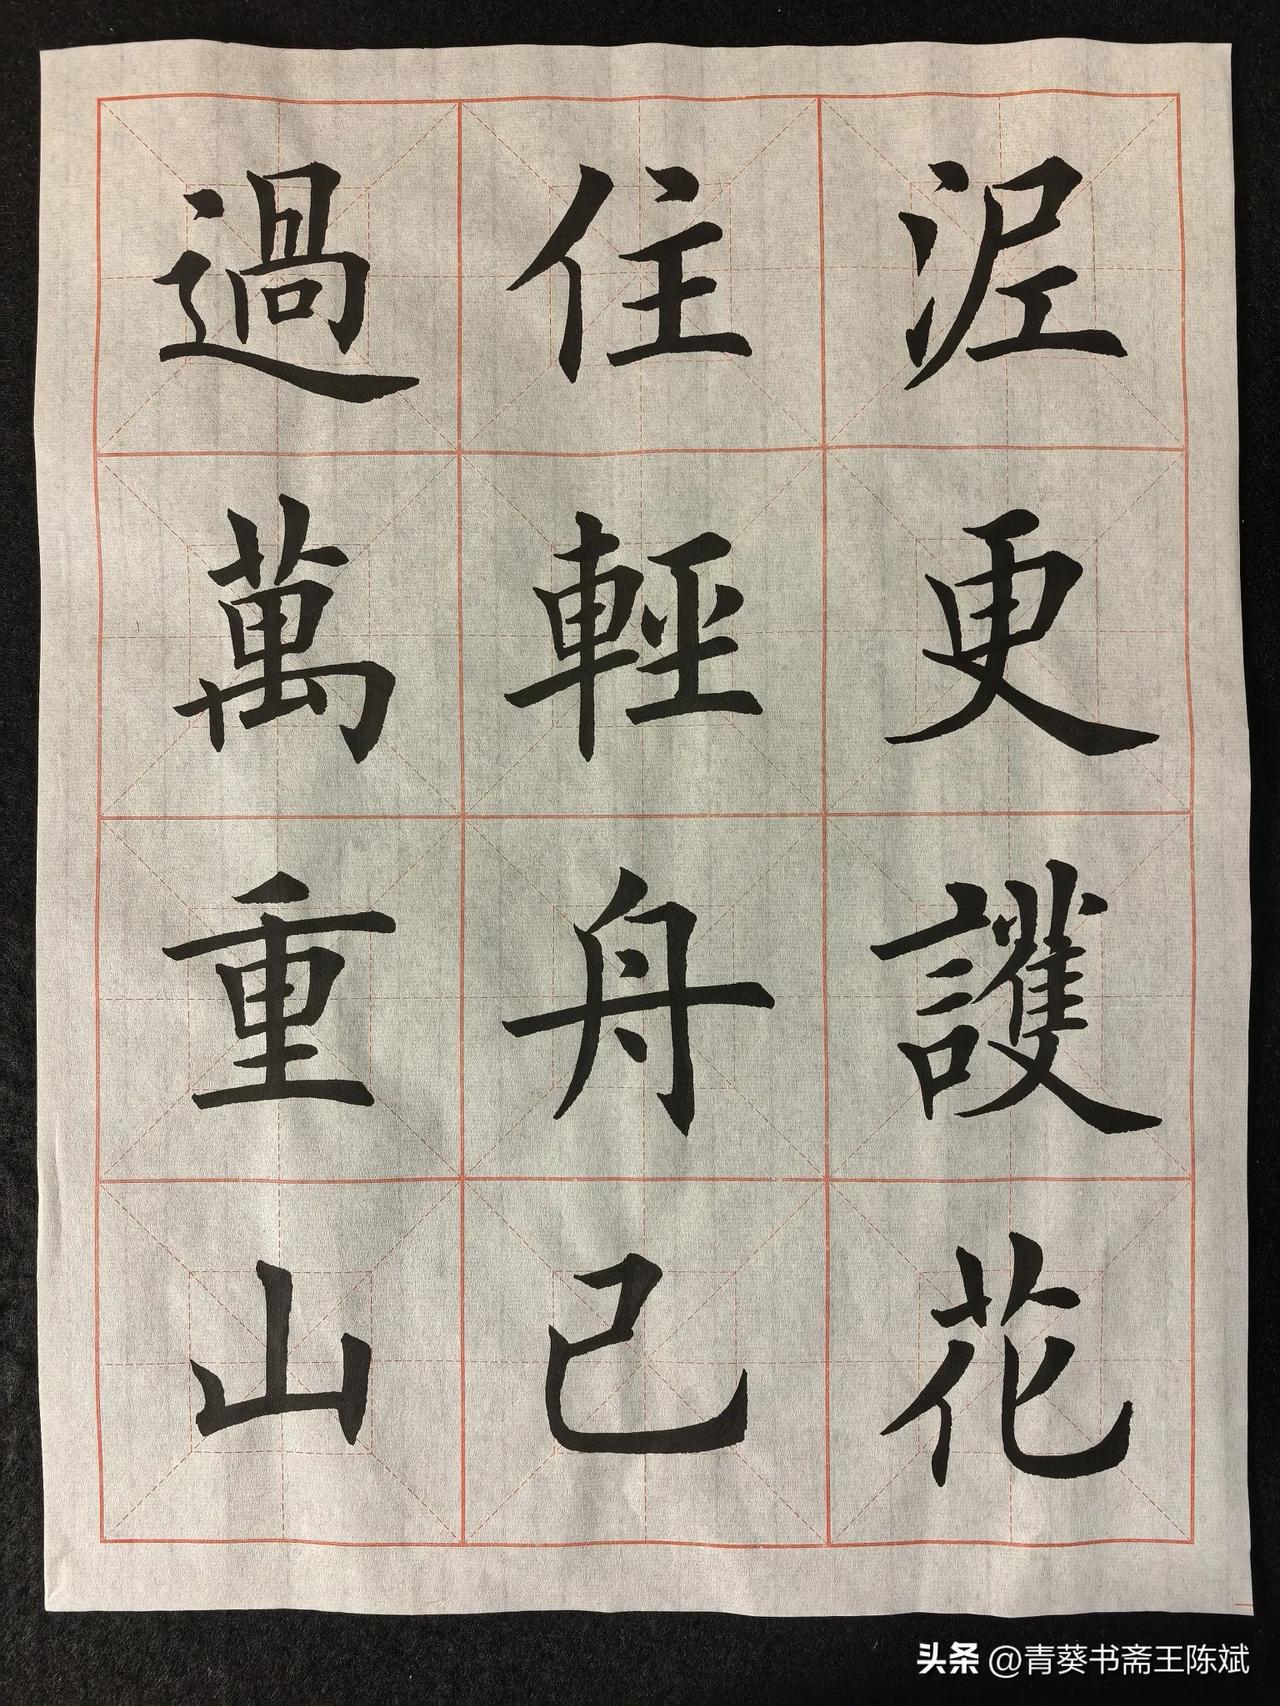 泥更護花
住輕舟已
過萬重山
头条 @青葵书斋王陈斌